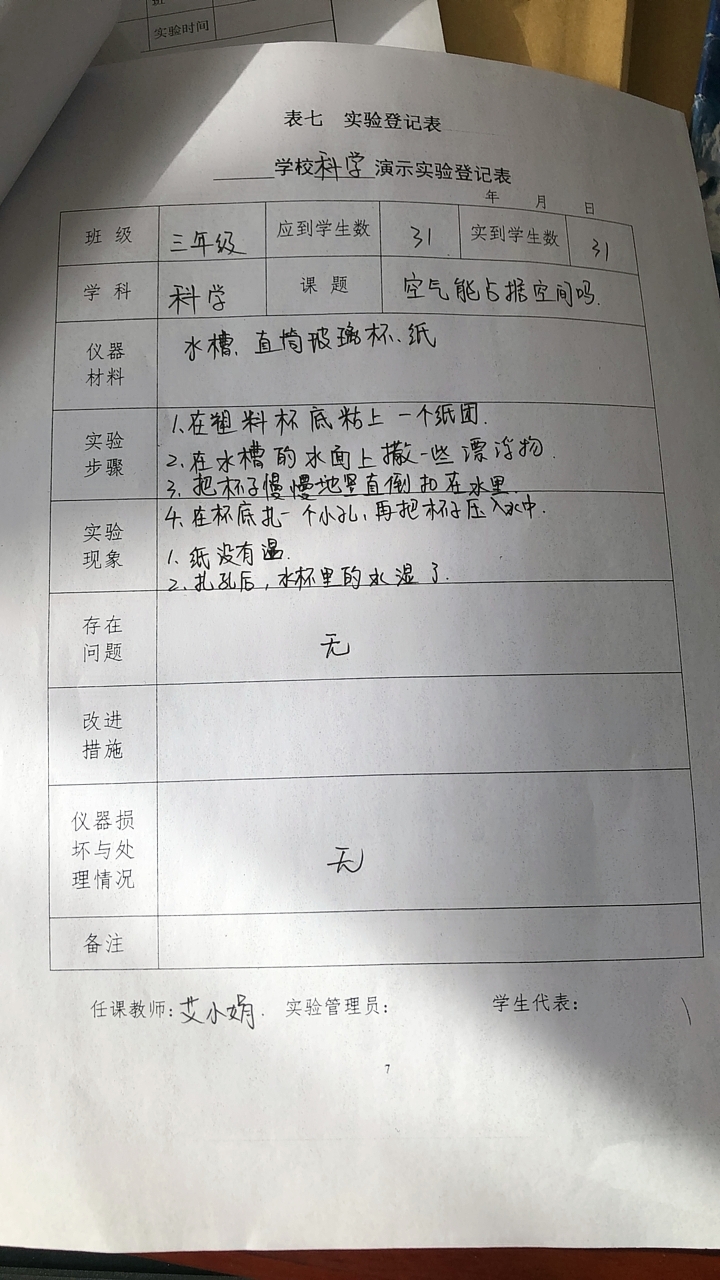 班
实验时间
表七 实验登记表
______学校科学 演示实验登记表
年 月 日
班 级 三年级 应到学生数 31 实到学生数 31
学 科 科学 课 题 空气能占据空间吗.
仪器
材料
水槽、直筒玻璃杯、纸
实验
步骤
1.在塑料杯底粘上一个纸团.
2.在水槽的水面上撒一些漂浮物.
3.把杯子慢慢地竖直倒扣在水里.
4.在杯底扎一个小孔,再把杯子压入水中.
实验
现象
1.纸没有温.
2.扎孔后,水杯里的水湿了.
存在
问题
无
改进
措施
仪器损
坏与处
理情况
无
备注
任课教师:艾小娟. 实验管理员: 学生代表:
7